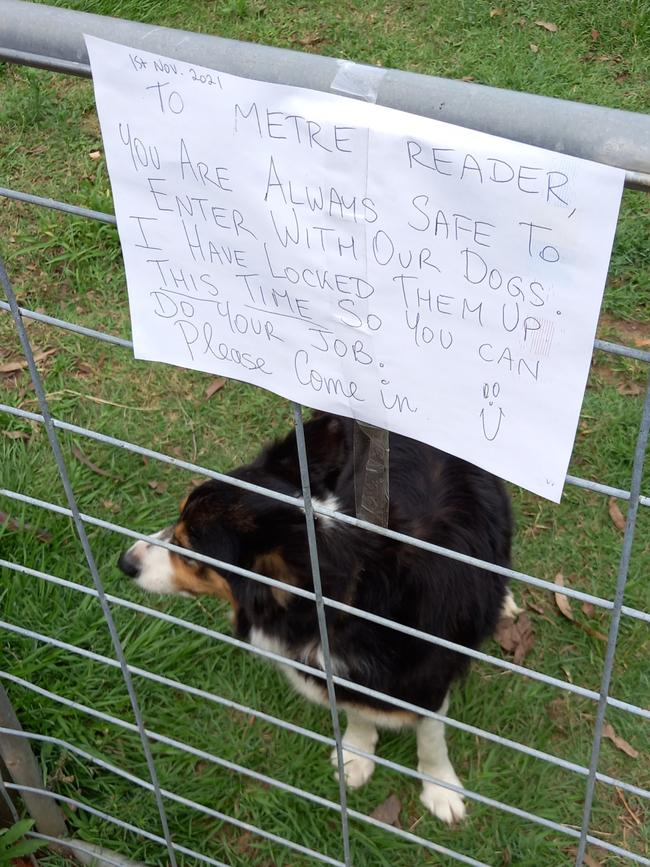 1st Nov. 2021
TO METRE READER,
YOU ARE ALWAYS SAFE TO
ENTER WITH OUR DOGS.
I HAVE LOCKED THEM UP
THIS TIME SO YOU CAN
DO YOUR JOB.
Please Come in